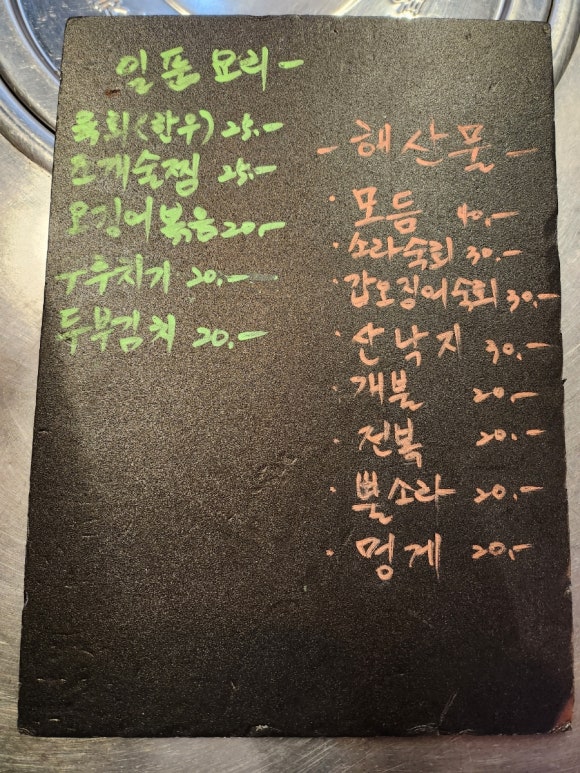 일품 요리 -
육회(한우) 25.-
조개술찜 25.-
오징어볶음 20.-
두루치기 20.-
두부김치 20.-
- 해산물 -
· 모듬 40.-
· 소라숙회 30.-
· 갑오징어숙회 30.-
· 산낙지 30.-
· 개불 20.-
· 전복 20.-
· 뿔소라 20.-
· 멍게 20.-